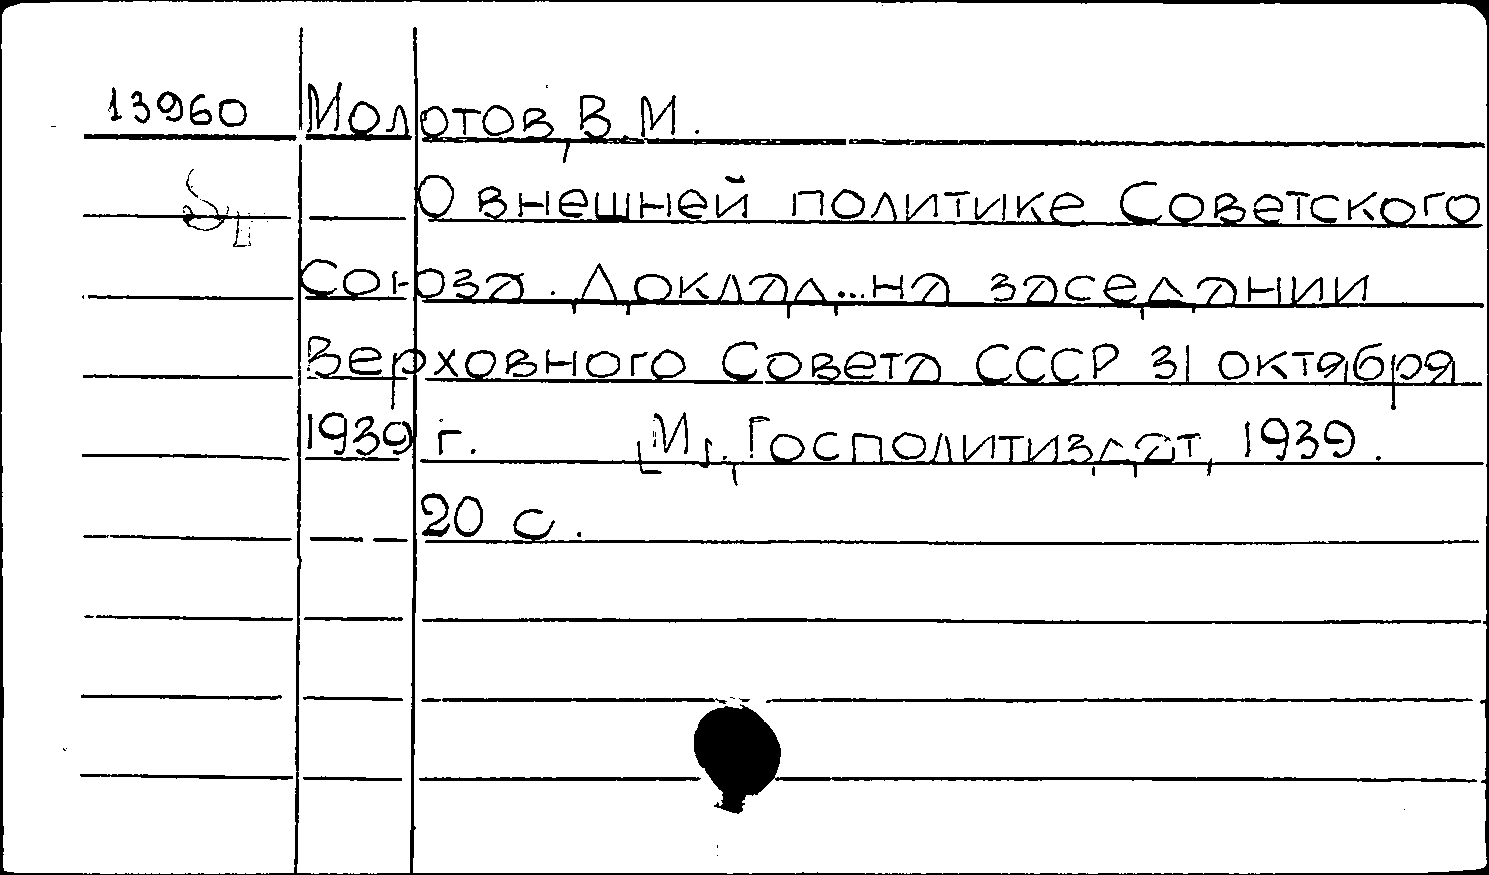 13960 Молотов, В.М.
О внешней политике Советского
Союза. Доклад... на заседании
Верховного Совета СССР 31 октября
1939 г. [М.], Госполитиздат, 1939.
20 с.